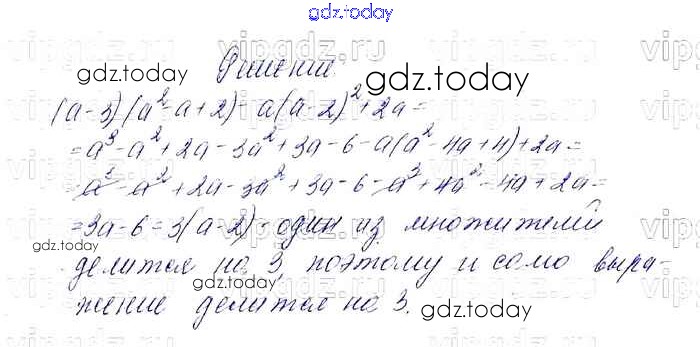 gdz.today
vipgdz.ru
Решение.
gdz.today
gdz.today
(a-3)(a²-a+2)-a(a-2)²+2a=
=a³-a²+2a-3a²+3a-6-a(a²-4a+4)+2a=
=a³-a²+2a-3a²+3a-6-a³+4a²-4a+2a=
=3a-6=3(a-2)-один из множителей
gdz.today
делится на 3, поэтому и само выра-
жение делится на 3.
gdz.today
gdz.today